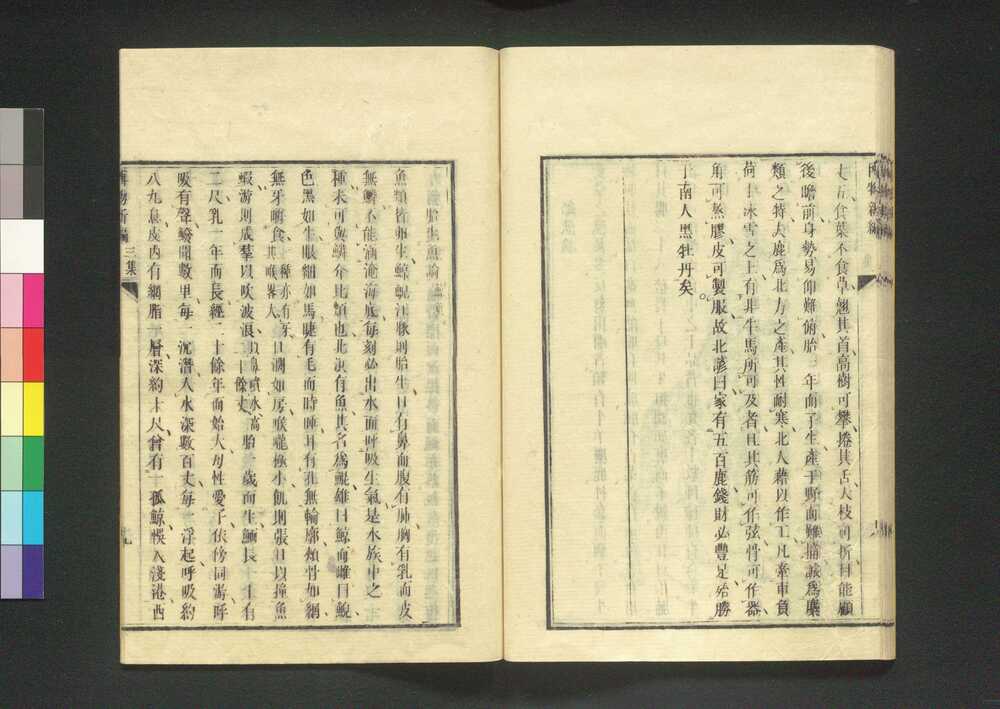 七五食葉不食草翹其首高樹可攀捲其舌大枝可折目能顧
後瞻前身勢易仰難俯胎三年而子生產于野而難捕誠爲鹿
類之特大鹿爲北方之產其性耐寒北人藉以作工凡牽車負
荷于冰雪之上有非牛馬所可及者且其筋可作弦骨可作器
角可熬膠皮可製服故北諺曰家有五百鹿錢財必豐足殆勝
于南人黑牡丹矣
博物新編
魚類皆卵生鯨鯢江豚則胎生且有鼻而腹有肺胸有乳而皮
無鱗不能涵淹海底每刻必出水面呼吸生氣是水族中之一
種未可與鱗介比類也北溟有魚其名爲鯤雄曰鯨而雌曰鯢
色黑如牛眼細如馬睫有毛而時睡耳有孔無輪廓頰骨如網
無牙嚼食一種亦有牙其喉畧大口濶如房喉嚨極小飢則張口以撞魚
蝦游則成羣以吹波浪以鼻噴水高二十餘丈胎一歲而生鯆長一丈有
二尺乳一年而長經二十餘年而始大母性愛子依傍同游呼
吸有聲響聞數里每一沉潛入水深數百丈每一浮起呼吸約
八九息皮內有網脂一層深約十尺曾有一孤鯨悞入淺港西
博物新編 三集 九